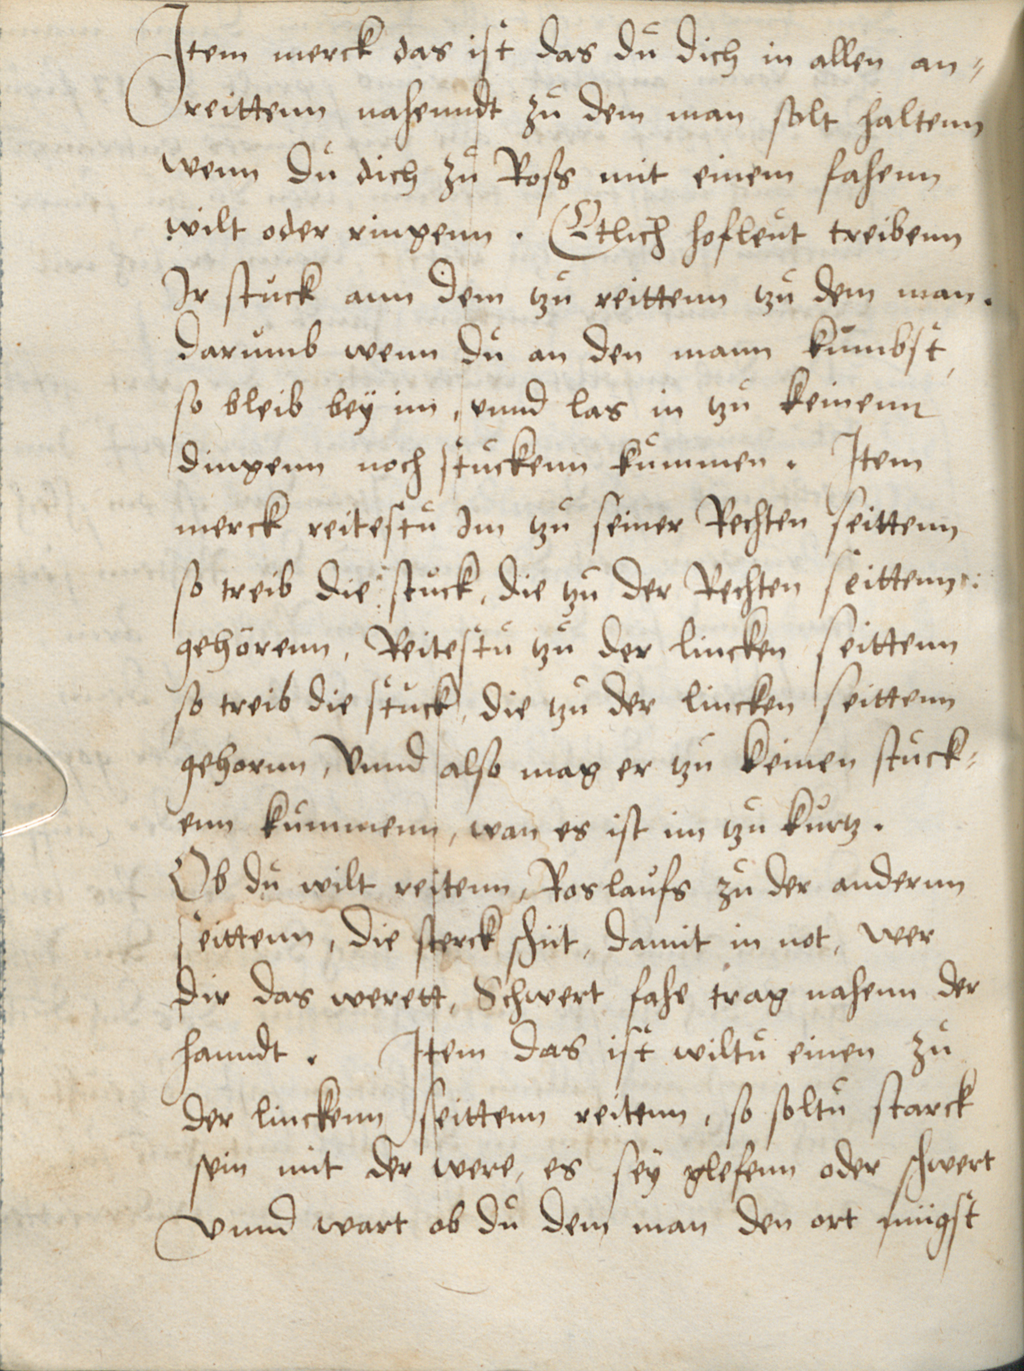 Item merck das ist das dú dich in allen an-
reittenn nahenndt zú dem man solt haltenn
wenn dú dich zú Ross mit einem fahenn
wilt oder ringenn. Etlich hofleút treibenn
Ir stúck ann dem tzú reittenn tzú dem man.
darúmb wenn dú an den mann kúmbst,
so bleib bey im, vnnd las in tzú keinenn
dingenn noch stúckenn kúmmen. Item
merck reitestú Im tzú seiner Rechten seittenn
so treib die stúck, die tzú der Rechten seittenn:
gehörenn, Reitestú tzú der lincken seittenn
so treib die stúck, die tzú der lincken seittenn
gehornn, Vnnd also mag er tzú keinen stúck-
enn kúmmenn, wan es ist im tzú kúrtz.
Ob dú wilt reitenn, Roslaúfs zú der andernn
seittenn, die sterck schüt, damit in not, wer
dir das werett, Schwert fahe trag nahenn der
hanndt. Item das ist wiltú einen zú
der linckenn seittenn reitenn, so soltú starck
sein mit der were, es sey glefenn oder schwert
vnnd wart ob dú dem man den ort mügst